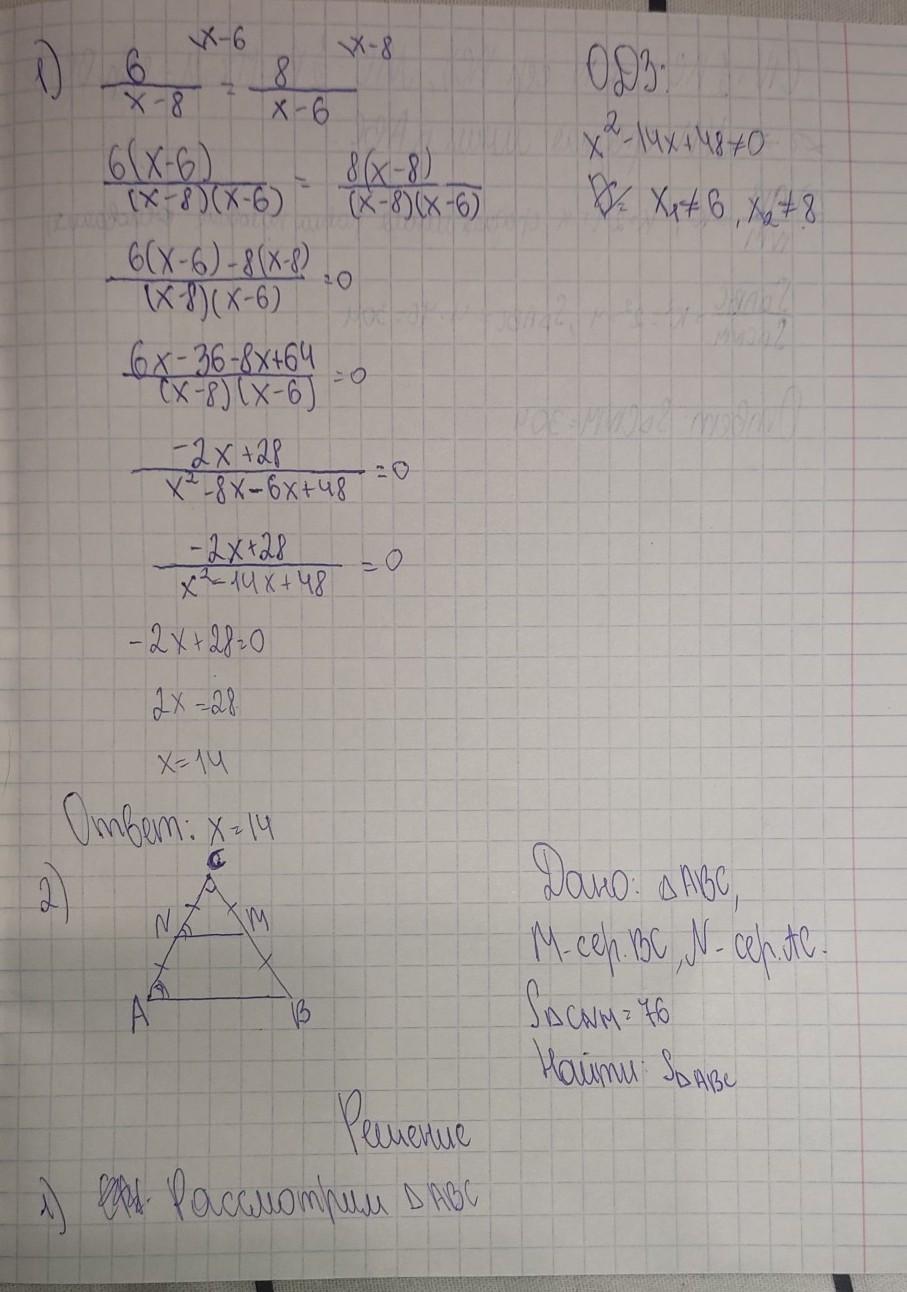 1) 6/(x-8) \x-6 = 8/(x-6) \x-8
ОДЗ:
x²-14x+48≠0
x₁≠6, x₂≠8
6(x-6)/(x-8)(x-6) = 8(x-8)/(x-8)(x-6)
6(x-6)-8(x-8)/(x-8)(x-6) =0
6x-36-8x+64/(x-8)(x-6) =0
-2x+28/x²-8x-6x+48 =0
-2x+28/x²-14x+48 =0
-2x+28=0
2x=28
x=14
Ответ: x=14
2)
C
N M
A B
Дано: △ABC,
M-сер.BC, N-сер.AC.
S△CNM=76
Найти: S△ABC
Решение
1) Рассмотрим △ABC